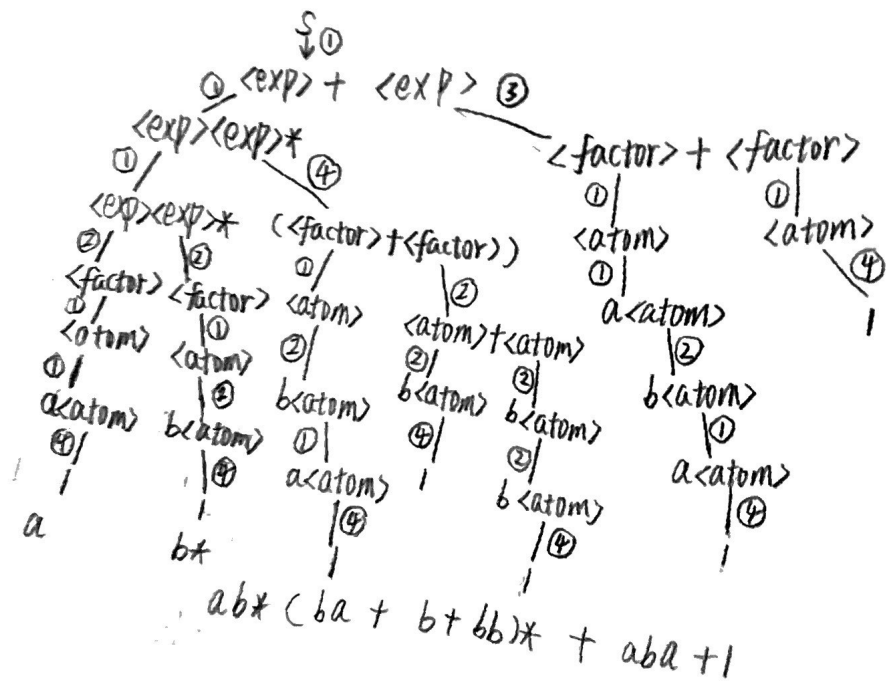 S ①
① <exp> + <exp> ③
<exp><exp>* <factor> + <factor>
① ④ ① ①
<exp><exp>* (<factor>+<factor>) <atom> <atom>
② ② ① ② ① ④
<factor> <factor> <atom> <atom>+<atom> a<atom> 1
① ① ② ② ② ②
<atom> <atom> b<atom> b<atom> b<atom> b<atom>
① ② ① ④ ② ①
a<atom> b<atom> a<atom> 1 b<atom> a<atom>
④ ④ ④ ④ ④
1 1 1 1 1
a b*
ab* (ba + b+bb)* + aba +1